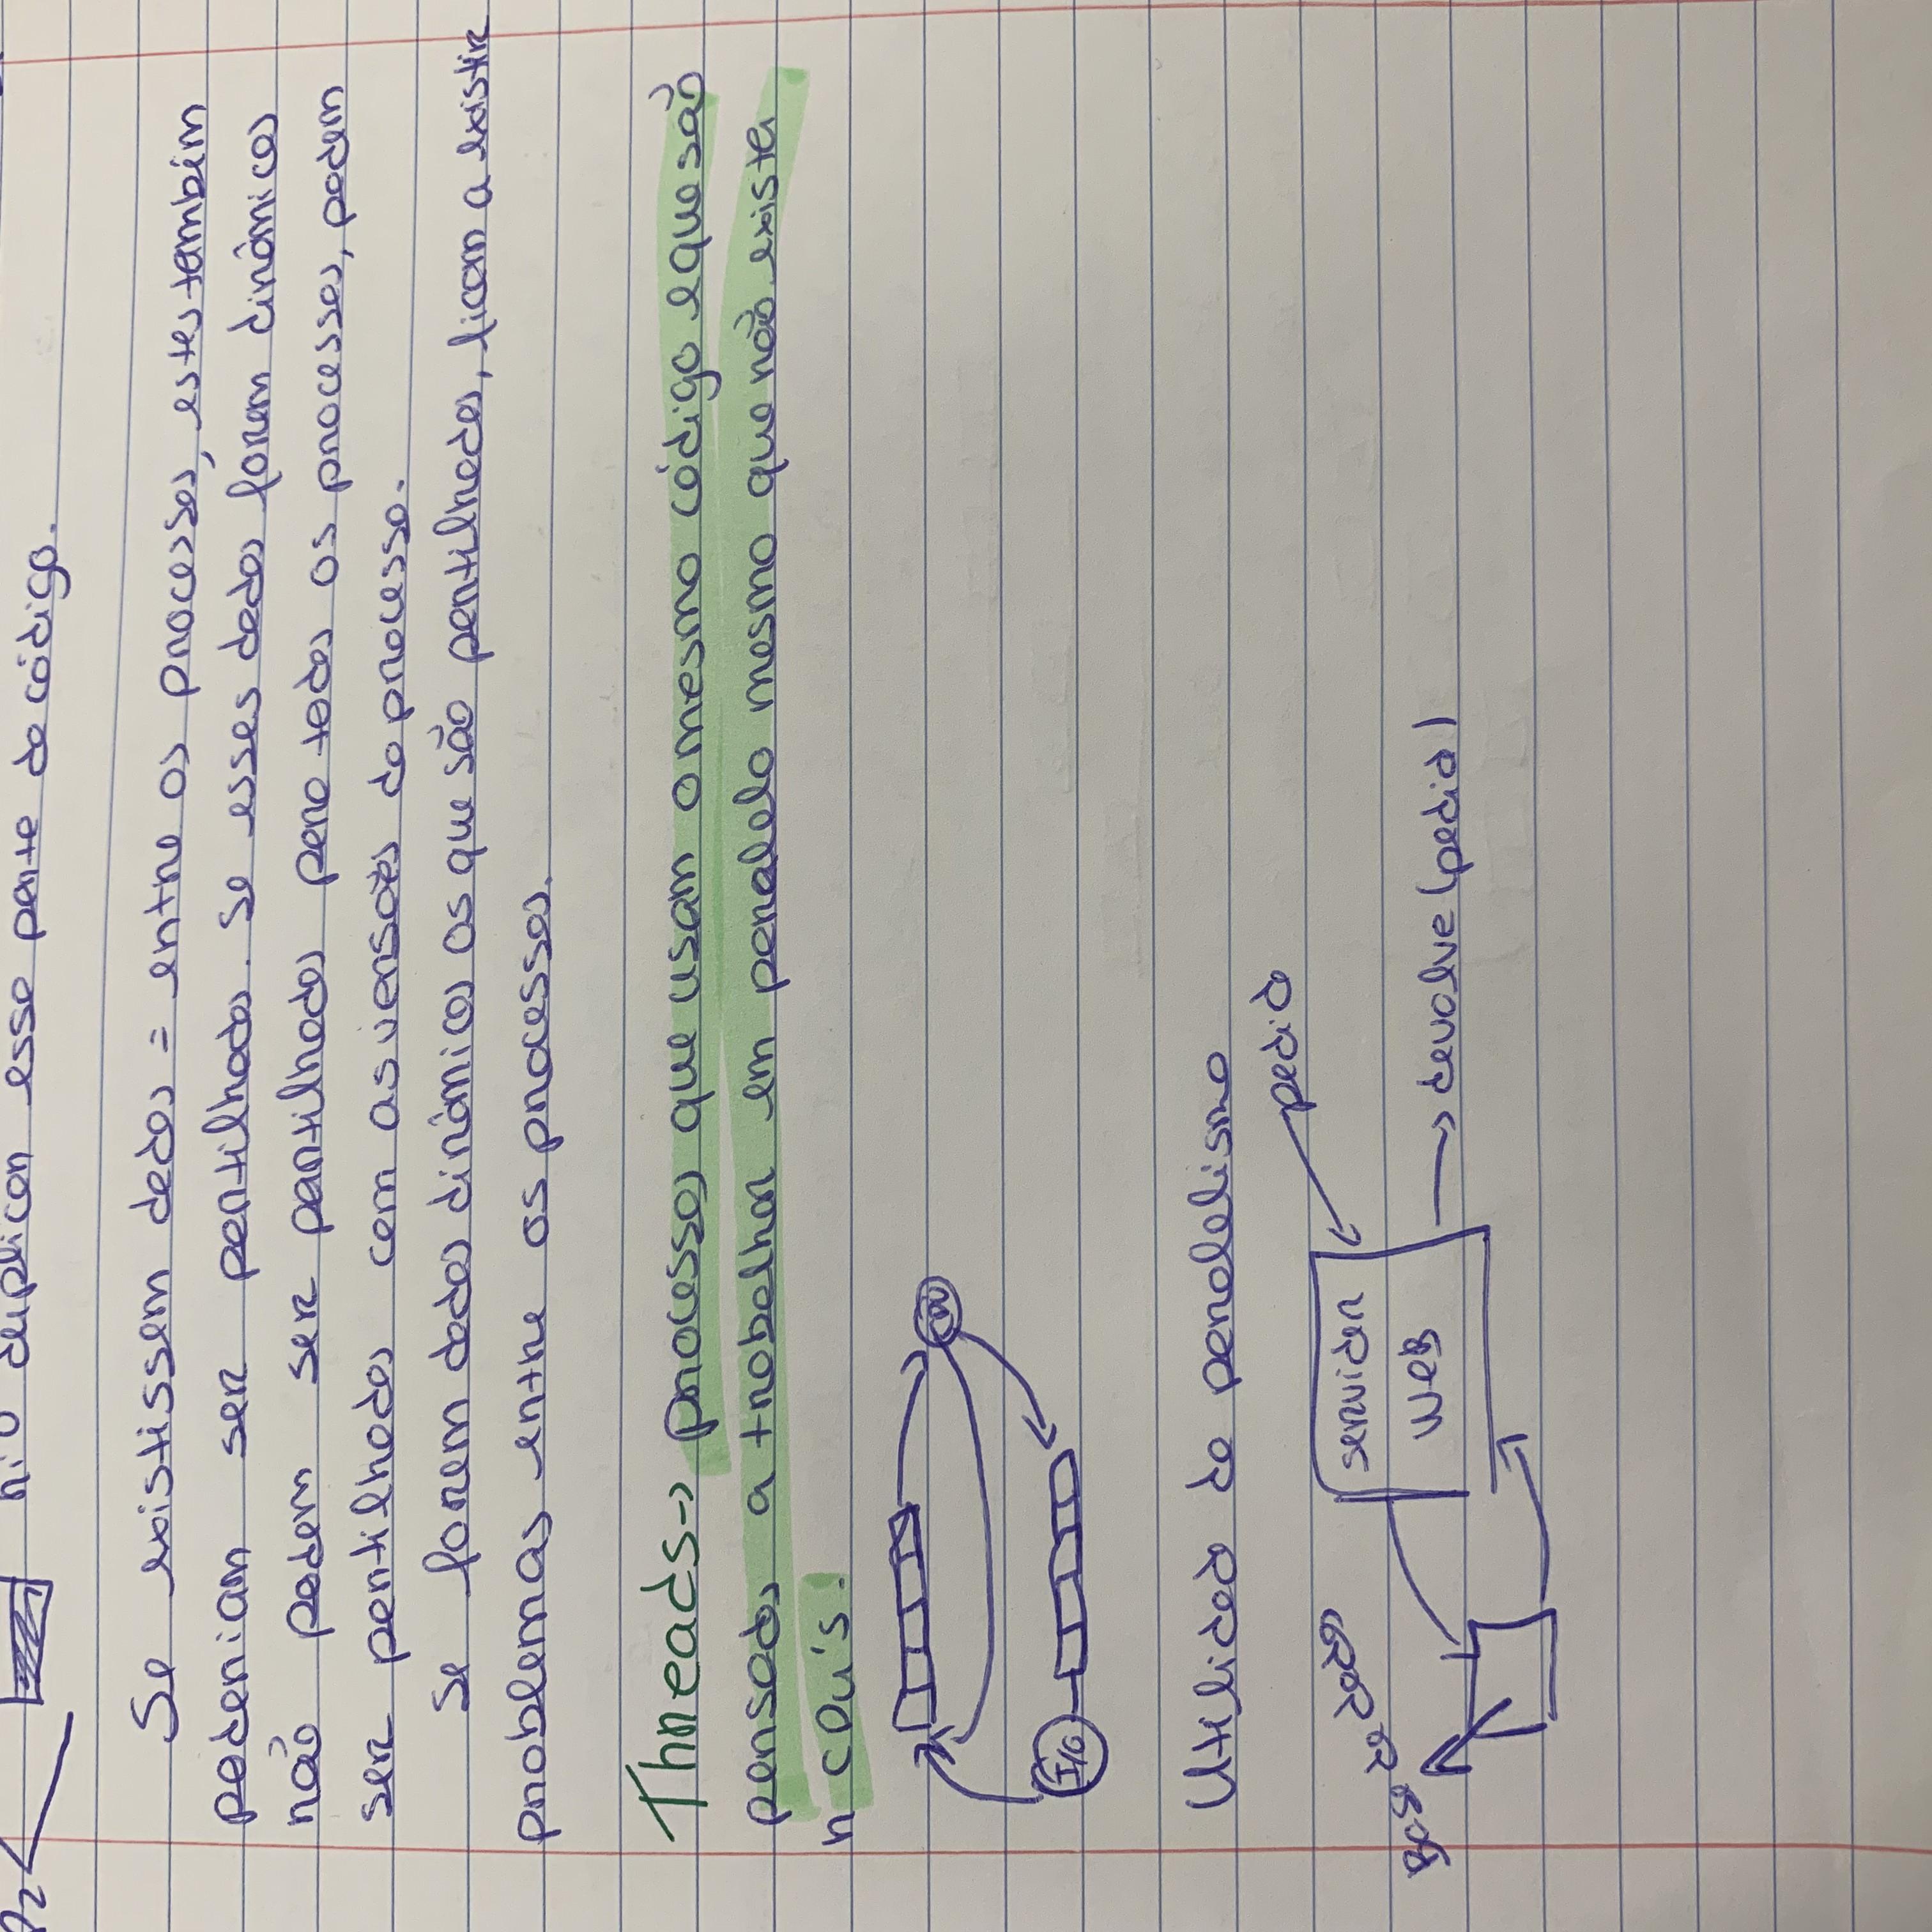 P2
não duplicar essa parte do código.
Se existissem dados = entre os processos, estes também
poderiam ser partilhados. Se esses dados forem dinâmicos
não podem ser partilhados para todos os processos, podem
ser partilhados com as versões do processo.
Se forem dados dinâmicos os que são partilhados, ficam a existir
problemas entre os processos.
Threads-> processos que usam o mesmo código e que são
pensados a trabalhar em paralelo mesmo que não exista
n CPU's.
CPU
I/O
Utilidade do paralelismo
pedido
Base de dados
servidor
WEB
devolve (pedido)